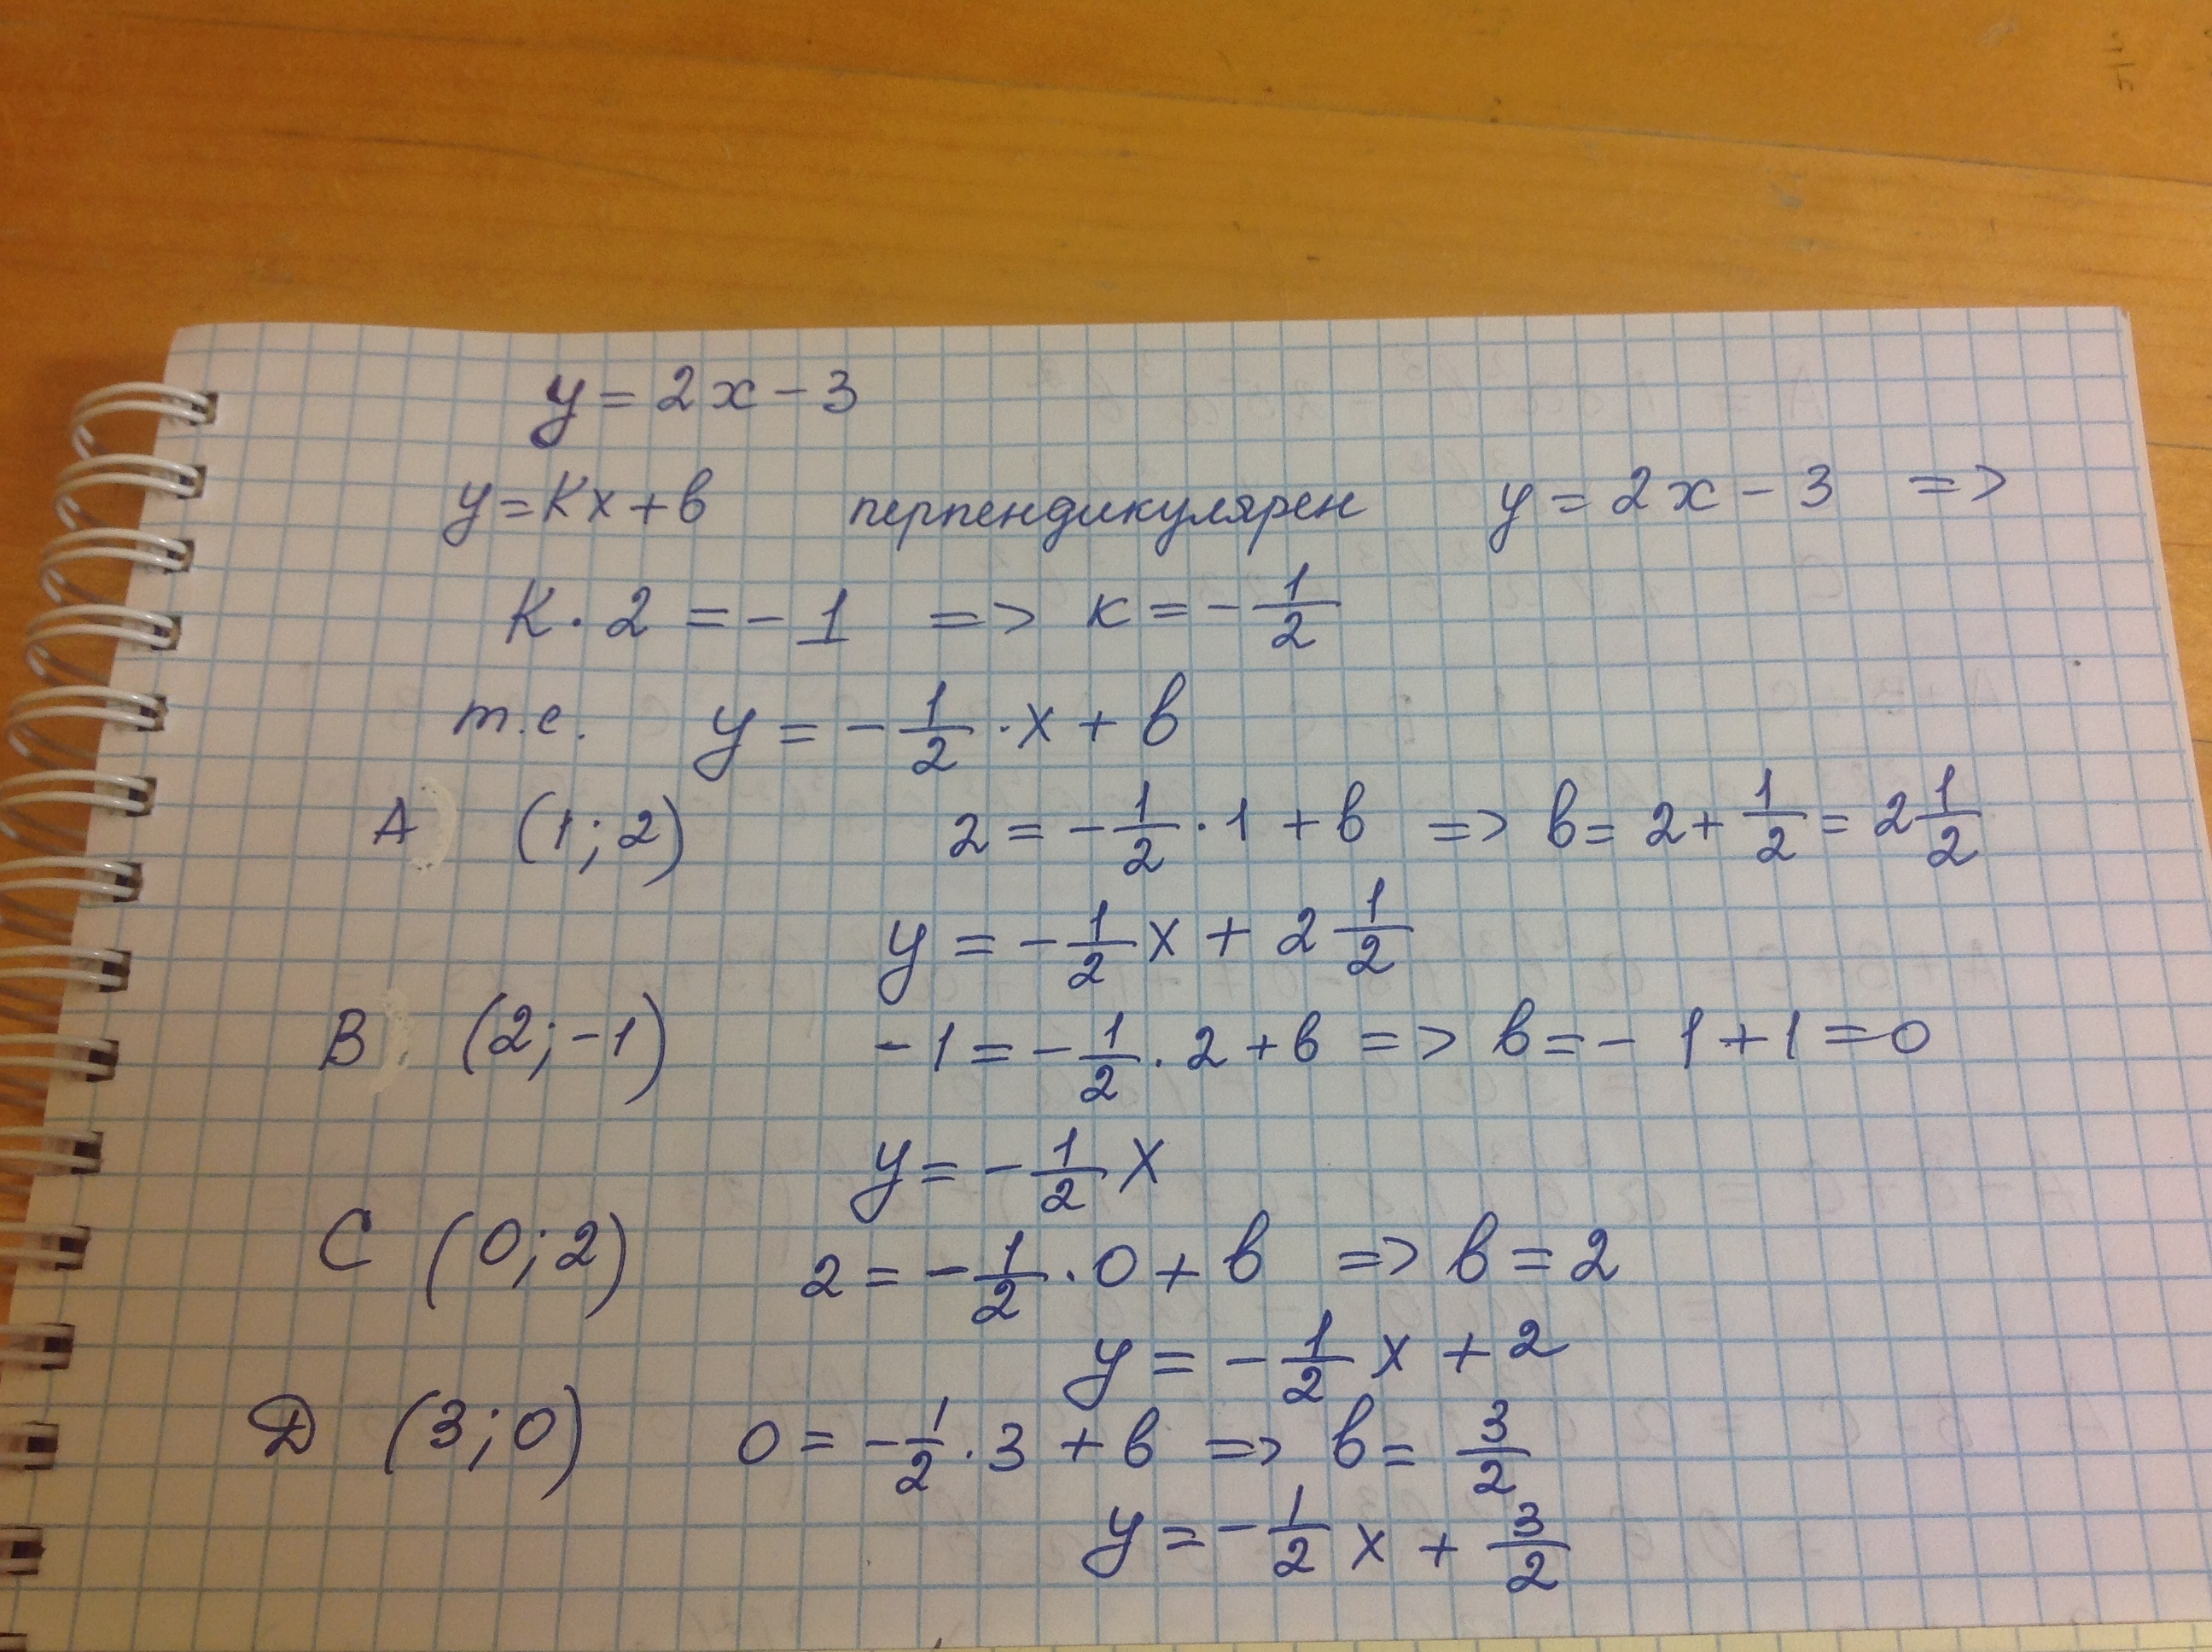 y = 2x - 3
y = Kx + b перпендикулярен y = 2x - 3 =>
K · 2 = - 1 => к = - 1/2
т.е. y = - 1/2 · x + b
A (1; 2) 2 = - 1/2 · 1 + b => b = 2 + 1/2 = 2 1/2
y = - 1/2 x + 2 1/2
B (2; -1) - 1 = - 1/2 · 2 + b => b = - 1 + 1 = 0
y = - 1/2 x
C (0; 2) 2 = - 1/2 · 0 + b => b = 2
y = - 1/2 x + 2
D (3; 0) 0 = - 1/2 · 3 + b => b = 3/2
y = - 1/2 x + 3/2